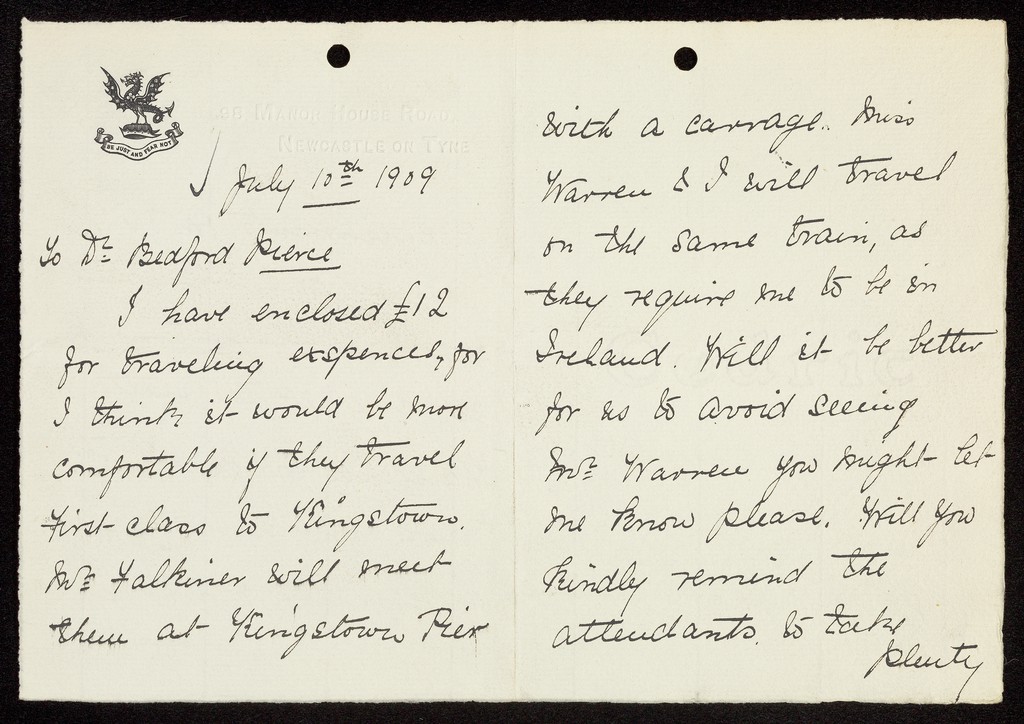 BE JUST AND FEAR NOT
98 MANOR HOUSE ROAD,
NEWCASTLE ON TYNE
July 10th 1909
To Dr Bedford Pierce
I have enclosed £12
for traveling exspences, for
I think it would be more
comfortable if they travel
first class to Kingstown.
Mrs Falkiner will meet
them at Kingstown Pier
with a carrage. Miss
Warren & I will travel
on the same train, as
they require me to be in
Ireland. Will it be better
for us to avoid seeing
Mrs Warren you might let
me know please. Will you
kindly remind the
attendants to take
plenty